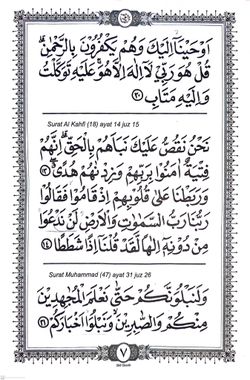 اَوْحَيْنَآ اِلَيْكَ وَهُمْ يَكْفُرُوْنَ بِالرَّحْمٰنِۗ
قُلْ هُوَرَبِّيْ لَآاِلٰهَ اِلَّاهُوَۚ عَلَيْهِ تَوَكَّلْتُ
وَاِلَيْهِ مَتَابِ ٣٠
Surat Al Kahfi (18) ayat 14 juz 15
نَحْنُ نَقُصُّ عَلَيْكَ نَبَاَهُمْ بِالْحَقِّۗ اِنَّهُمْ
فِتْيَةٌ اٰمَنُوْا بِرَبِّهِمْ وَزِدْنٰهُمْ هُدًىۖ ١٣
وَرَبَطْنَا عَلٰى قُلُوْبِهِمْ اِذْقَامُوْا فَقَالُوْا
رَبُّنَارَبُّ السَّمٰوٰتِ وَالْاَرْضِ لَنْ نَدْعُوَا۟
مِنْ دُوْنِهٖٓ اِلٰهًا لَّقَدْ قُلْنَآ اِذًا شَطَطًا ١٤
Surat Muhammad (47) ayat 31 juz 26
وَلَنَبْلُوَنَّكُمْ حَتّٰى نَعْلَمَ الْمُجٰهِدِيْنَ
مِنْكُمْ وَالصّٰبِرِيْنَۙ وَنَبْلُوَا۟ اَخْبَارَكُمْ ٣١
٧